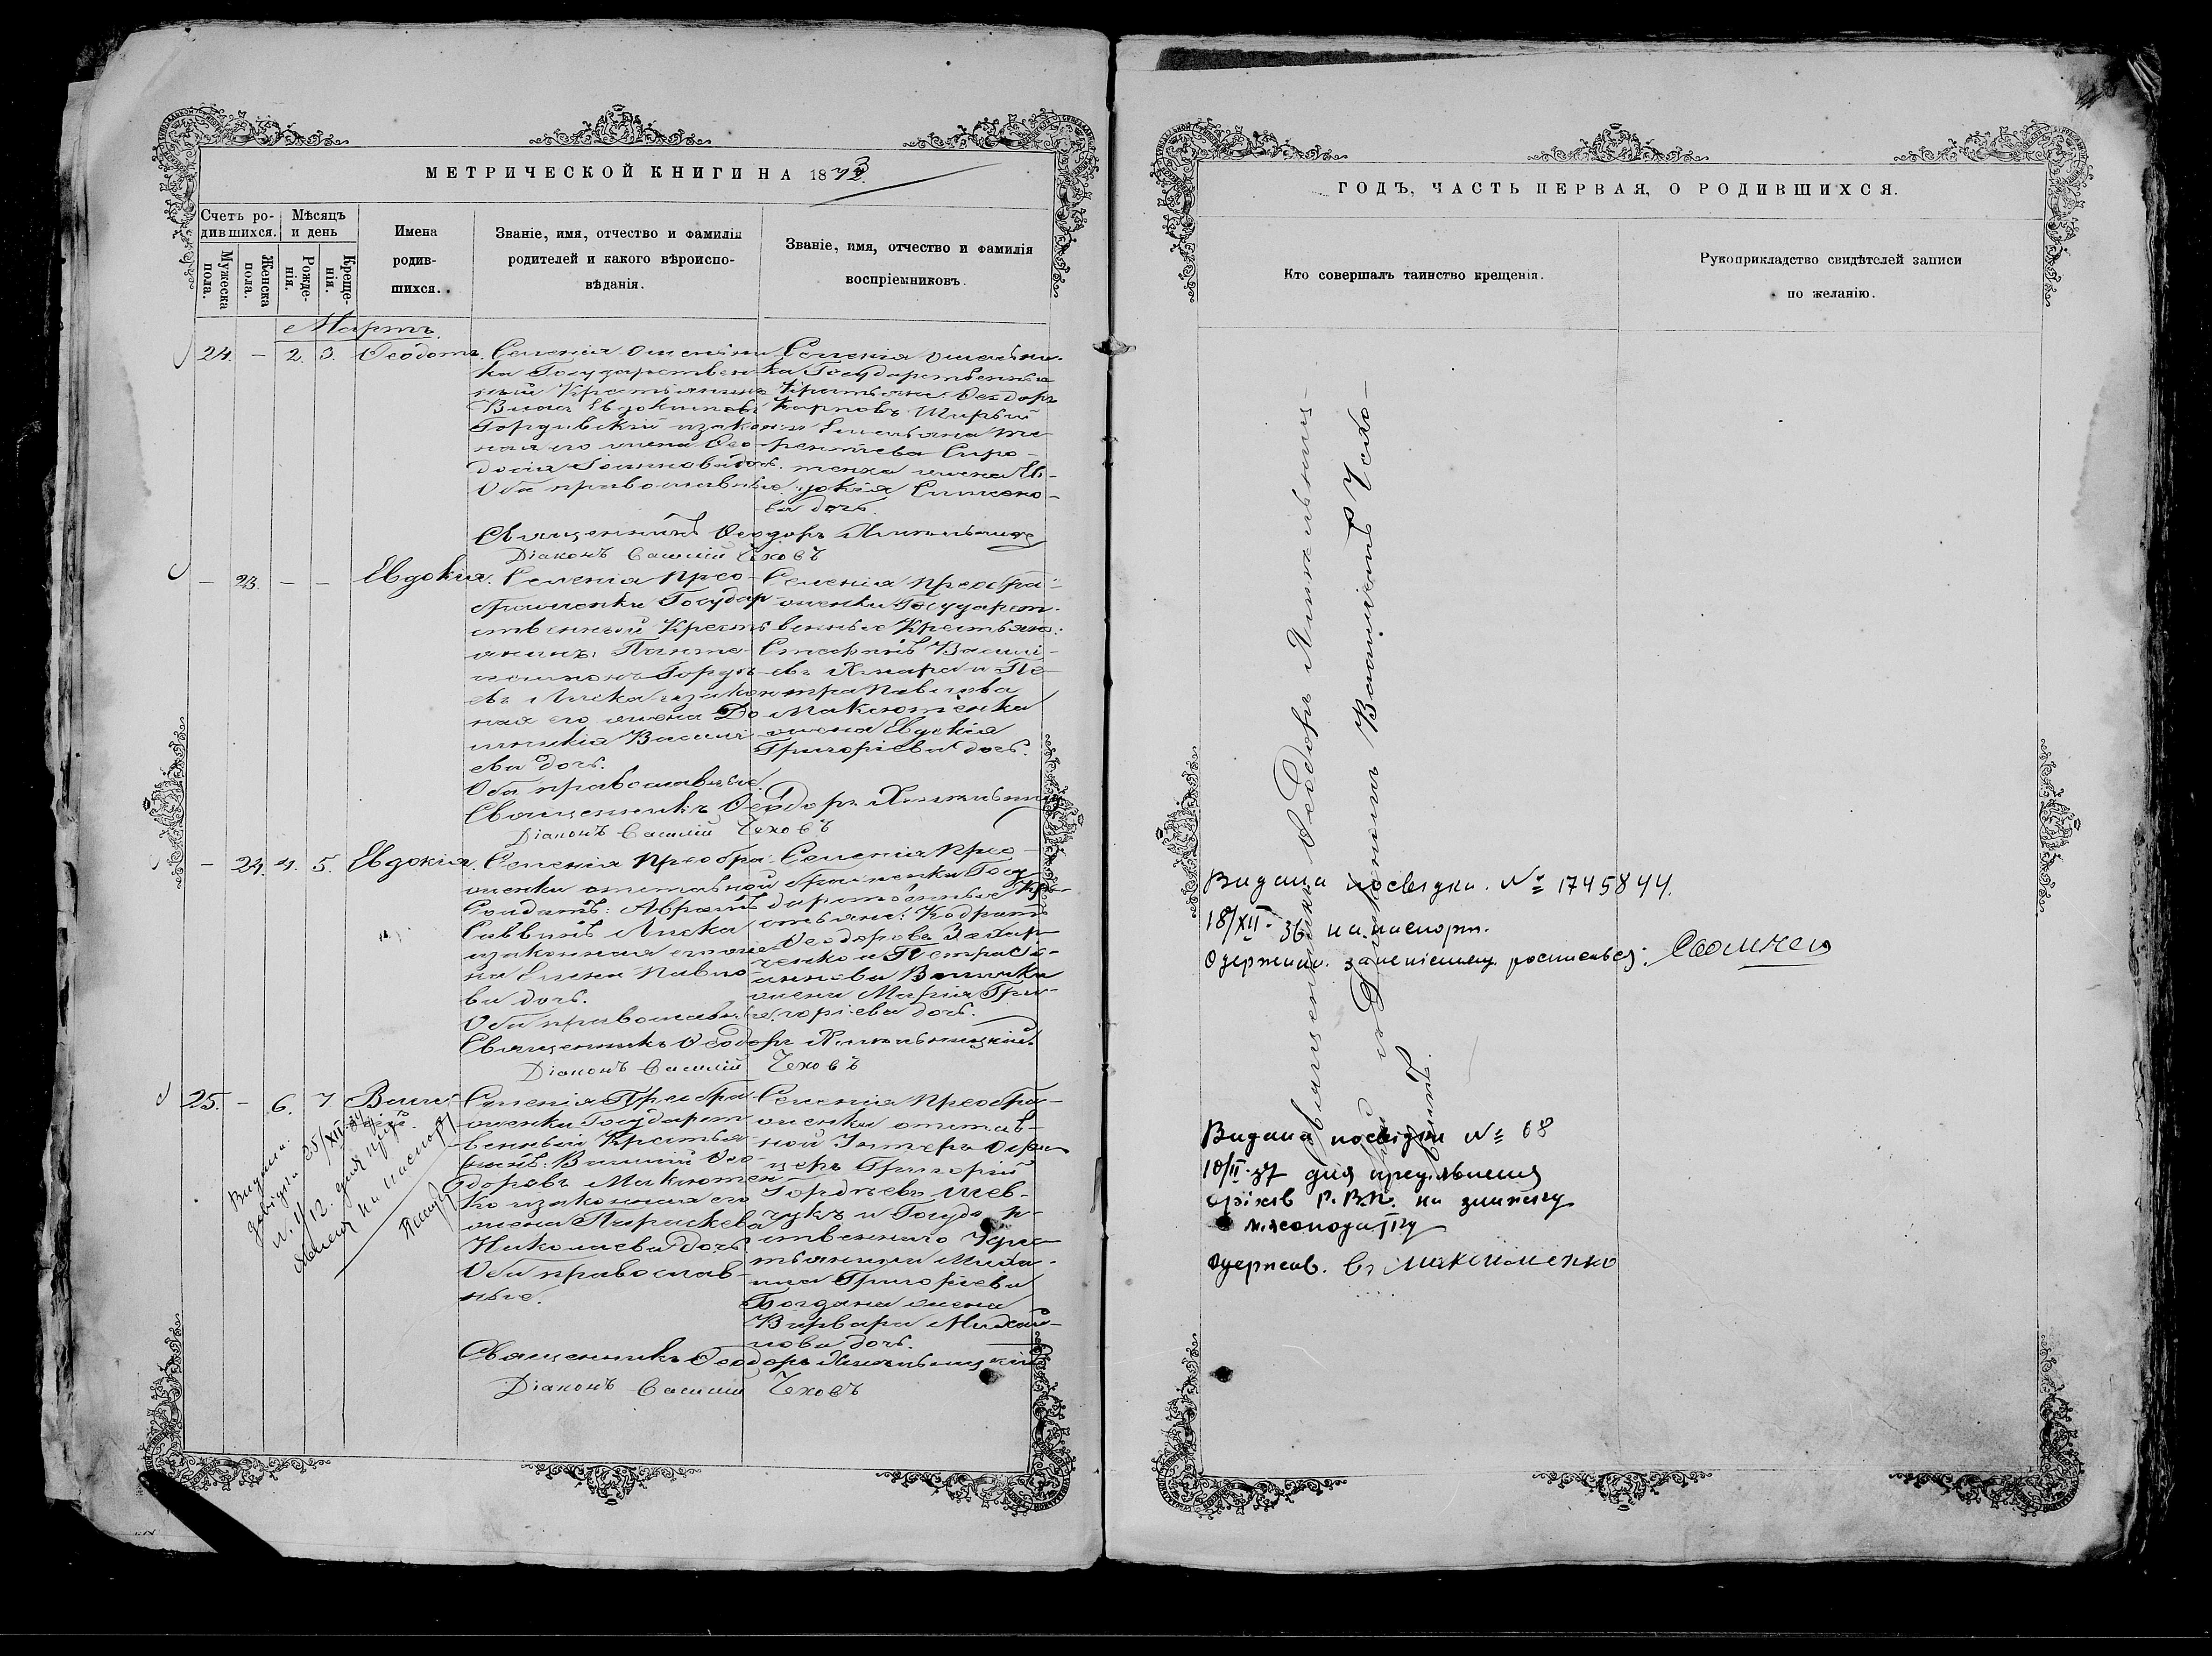 МЕТРИЧЕСКОЙ КНИГИ НА 1873
Счетъ ро-
дившихся.
Мѣсяцъ
и день
Мужеска
пола.
Женска
пола.
Рожде-
нія.
Креще-
нія.
Имена
родив-
шихся.
Званіе, имя, отчество и фамилія
родителей и какого вѣроиспо-
вѣданія.
Званіе, имя, отчество и фамилія
воспріемниковъ.
Мартъ.
24. - 2. 3. Ѳеодотъ.
Селенія
ка Государствен-
ный Крестьянинъ
Власъ Евдокимовъ
и закон-
ная его жена Ѳео-
досія Іоаннова дочь.
Оба православные.
Селенія
ка Государственные
Крестьяне: Ѳеодоръ
Карповъ Ширый
и Емельяна Те-
рентіева Сиро-
тенка жена Ев-
докія Симено-
ва дочь.
Священникъ Ѳеодоръ
Діаконъ Василій Чеховъ
- 23. - - Евдокія.
Селенія Прео-
браженки Государ-
ственный Кресть-
янинъ: Пантеле-
имонъ Гордѣ-
евъ Лиска и закон-
ная его жена До-
мникія Василі-
ева дочь.
Оба православные.
Селенія Преобра-
женки Государст-
венные Крестьяне:
Стефанъ Василі-
евъ Хмара и Пе-
тра Павлова
Максютенка
жена Евдокія
Григоріева дочь.
Священникъ Ѳеодоръ
Діаконъ Василій Чеховъ
- 24. 4. 5. Евдокія.
Селенія Преобра-
женки отставной
Солдатъ: Аврамъ
Саввинъ Лиска
и законная его же-
на Елена Павло-
ва дочь.
Оба православные.
Селенія Прео-
браженки Госу-
дарственные Кре-
стьяне: Кодратъ
Ѳеодоровъ Захар-
ченко и Петра
Іоаннова
жена Марія Гри-
горіева дочь.
Священникъ Ѳеодоръ
Діаконъ Василій Чеховъ
25. - 6. 7. Васи-
лій.
Селенія Преобра-
женки Государст-
венный Крестья-
нинъ: Василій Ѳео-
доровъ Максютен-
ко и законная его
жена Параскева
Николаева дочь.
Оба православ-
ные.
Селенія Преобра-
женки отстав-
ной Унтеръ Офи-
церъ Григорій
Гордѣевъ Шев-
чукъ и Государ-
ственнаго Кре-
стьянина Миха-
ила Григоріева
Богдана жена
Варвара Михай-
лова дочь.
Священникъ Ѳеодоръ
Діаконъ Василій Чеховъ
Видана
довідка 25/XII-
№ 4/12. для
на паспорт
ГОДЪ, ЧАСТЬ ПЕРВАЯ, О РОДИВШИХСЯ.
Кто совершалъ таинство крещенія.
Рукоприкладство свидѣтелей записи
по желанію.
Священникъ Ѳеодоръ
и Діаконъ Василій Чехо-
Видана посвідка. № 1745844.
18/XII-36 на паспорт.
Видана посвідка № 68
10/II-37 для
Р.В.К. на
одержав. В. Максименко